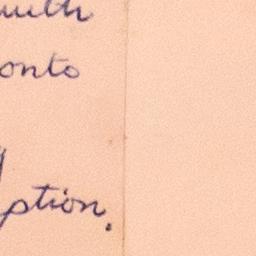 with
onto
ption.